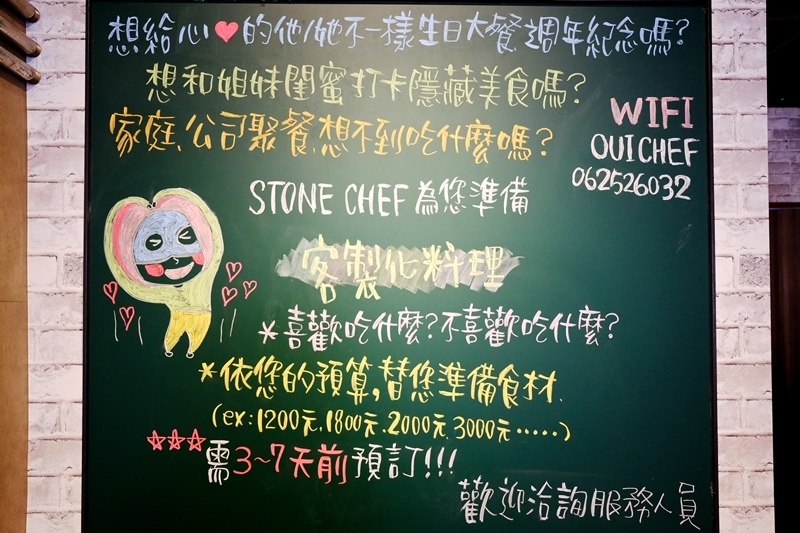 想給心♥的他/她不一樣生日大餐、週年紀念嗎?
想和姐妹閨蜜打卡隱藏美食嗎?
家庭、公司聚餐、想不到吃什麼嗎?
WIFI
OUICHEF
062526032
STONE CHEF 為您準備
客製化料理
*喜歡吃什麼?不喜歡吃什麼?
*依您的預算,替您準備食材.
(ex:1200元.1800元.2000元.3000元……)
☆☆☆需3~7天前預訂!!!
歡迎洽詢服務人員